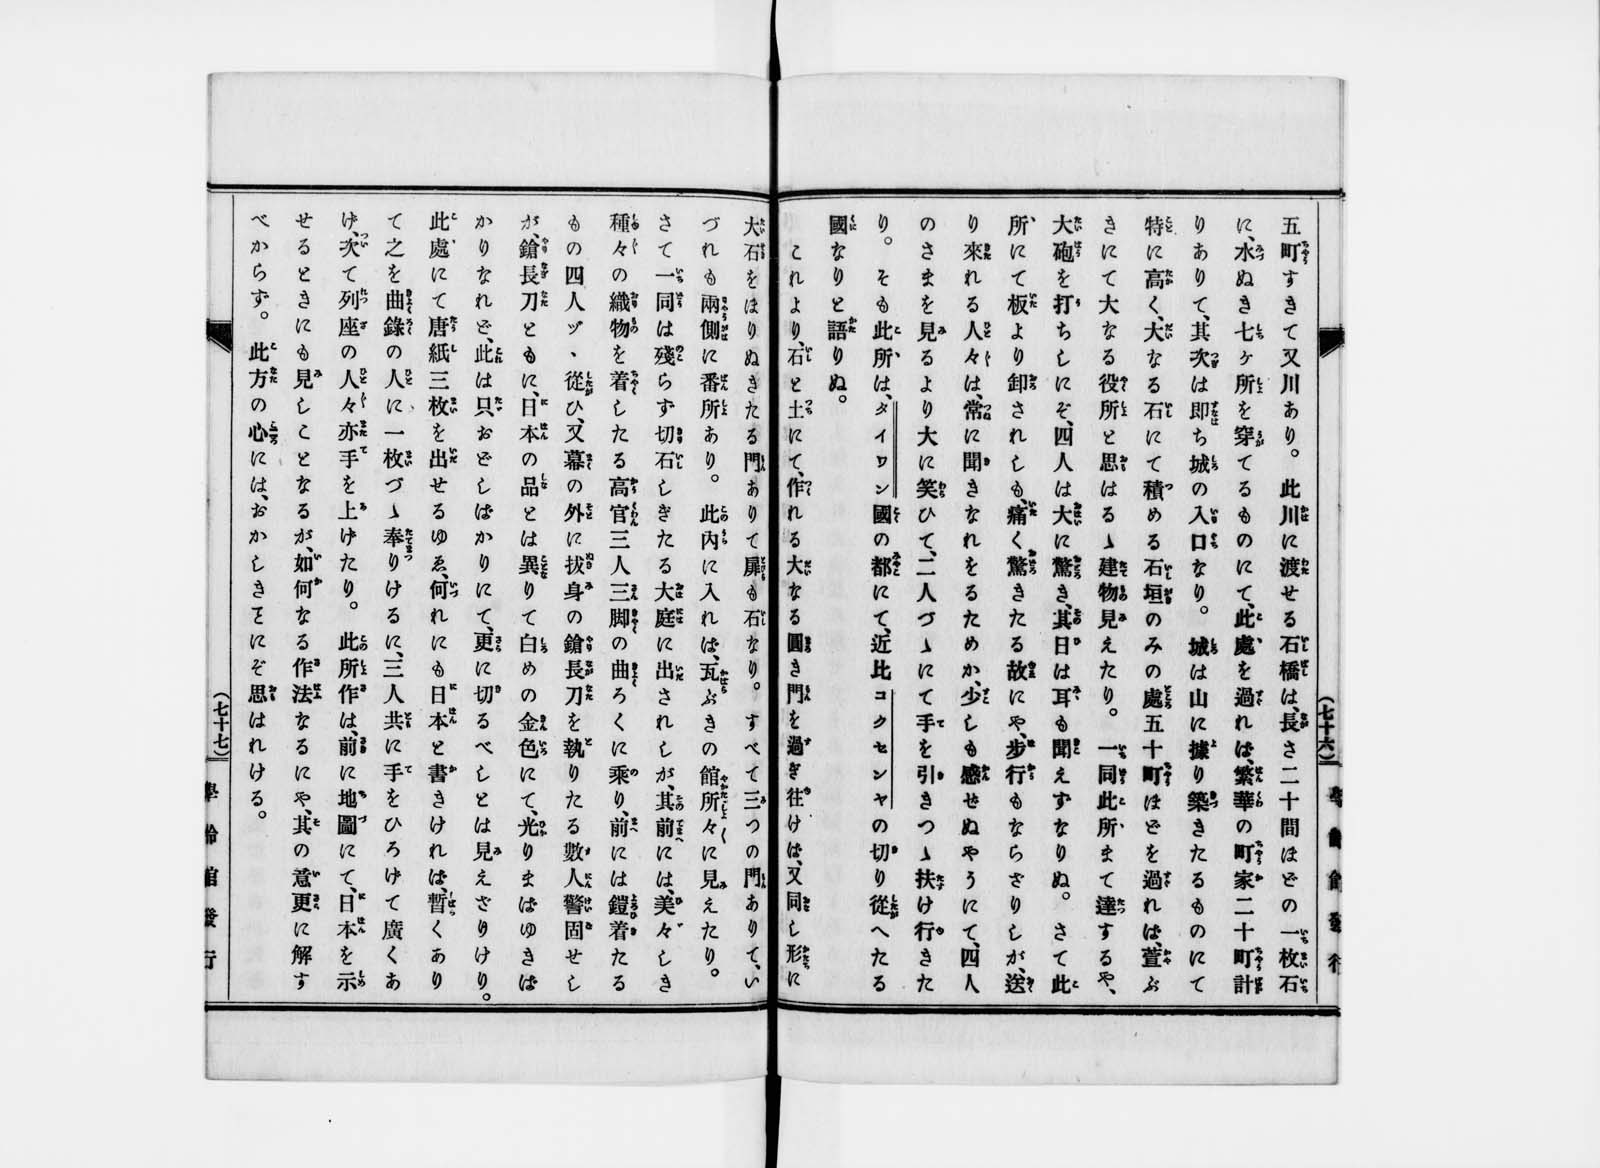 五町すきて又川あり。此川に渡せる石橋は、長さ二十間ほどの一枚石
に、水ぬき七ヶ所を穿てるものにて、此處を過れば、繁華の町家二十町計
りありて、其次は即ち城の入口なり。城は山に據り築きたるものにて
特に高く、大なる石にて積める石垣のみの處五十町ほどを過れば、萱ぶ
きにて大なる役所と思はるゝ建物見えたり。一同此所まて達するや、
大砲を打ちしにぞ、四人は大に驚き、其日は耳も聞えずなりぬ。さて此
所にて板より卸されしも、痛く驚きたる故にや、步行もならざりしが、送
り來れる人々は、常に聞きなれをるためか、少しも感せぬやうにて、四人
のさまを見るより大に笑ひて、二人づゝにて手を引きつゝ扶け行きた
り。そも此所は、タイワン國の都にて、近比コクセンヤの切り從へたる
國なりと語りぬ。
これより、石と土にて、作れる大なる圓き門を過ぎ往けば、又同し形に
大石をほりぬきたる門ありて扉も石なり。すべて三つの門ありて、い
づれも兩側に番所あり。此内に入れば、瓦ぶきの館所々々に見えたり。
さて一同は殘らず切石しきたる大庭に出されしが、其前には、美々しき
種々の織物を着したる高官三人三脚の曲ろくに乘り、前には鎧着たる
もの四人ヅヽ從ひ、又幕の外に拔身の鎗長刀を執りたる數人警固せし
が、鎗長刀ともに、日本の品とは異りて白めの金色にて、光りまばゆきば
かりなれど、此は只おどしばかりにて、更に切るべしとは見えざりけり。
此處にて唐紙三枚を出せるゆゑ、何れにも日本と書きけれは、暫くあり
て之を曲錄の人に一枚づゝ奉りけるに、三人共に手をひろげて廣くあ
げ、次て列座の人々亦手を上げたり。此所作は、前に地圖にて、日本を示
せるときにも見しことなるが、如何なる作法なるにや、其の意更に解す
べからず。此方の心には、おかしきことにぞ思はれける。
(七十六)
(七十七)